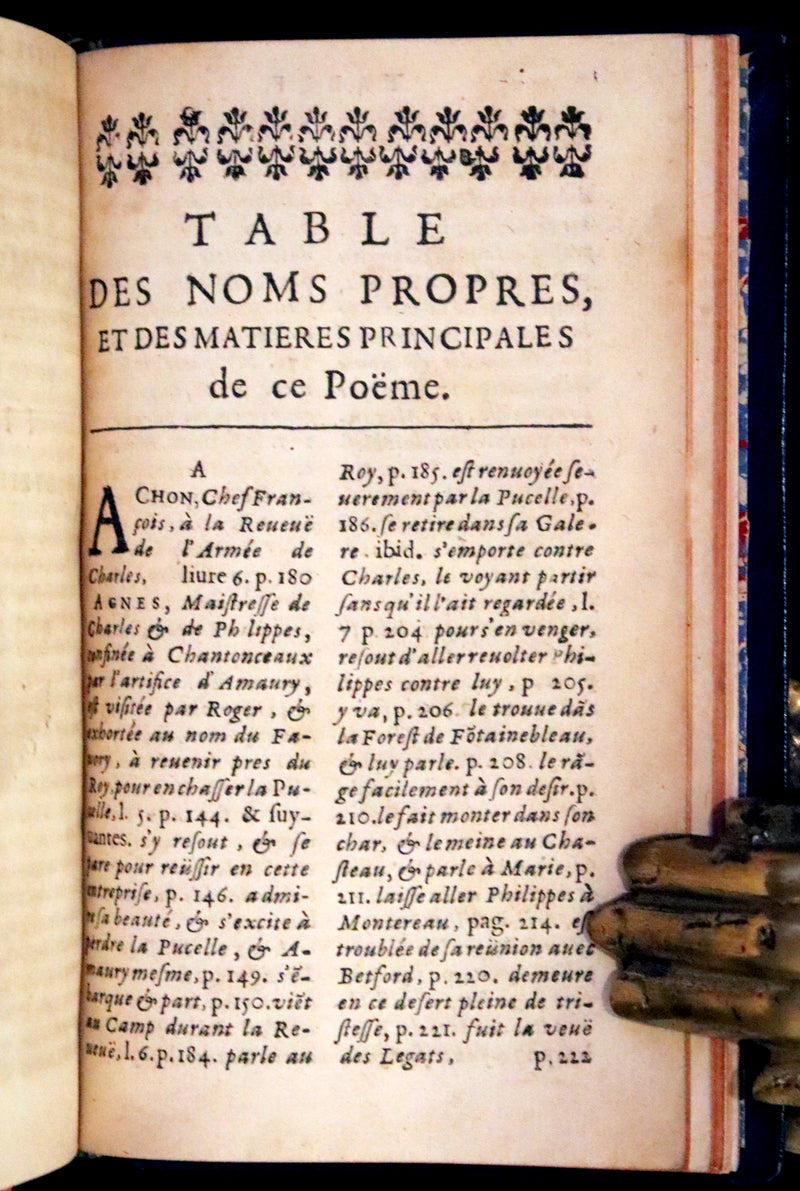 TABLE
DES NOMS PROPRES,
ET DES MATIERES PRINCIPALES
de ce Poëme.
A
ACHON, Chef Fran-
çois, à la Reueuë
de l'Armée de
Charles, liure 6. p. 180
AGNES, Maiſtreſſe de
Charles & de Ph lippes,
confinée à Chantonceaux
par l'artifice d'Amaury,
eſt viſitée par Roger, &
exhortée au nom du Fa-
uory, à reuenir pres du
Roy, pour en chaſſer la Pu-
celle, l. 5. p. 144. & ſuy-
uantes. s'y reſout, & ſe
pare pour reüſſir en cette
entrepriſe, p. 146. admi-
re ſa beauté, & s'excite à
perdre la Pucelle, & A-
maury meſme, p. 149. s'ẽ-
barque & part, p. 150. viẽt
au Camp durant la Re-
ueuë, l. 6. p. 184. parle au
Roy, p. 185. eſt renuoyée ſe-
uerement par la Pucelle, p.
186. ſe retire dans ſa Gale-
re. ibid. s'emporte contre
Charles, le voyant partir
ſans qu'il l'ait regardée, l.
7 p 204 pour s'en venger,
reſout d'aller reuolter Phi-
lippes contre luy, p 205.
y va, p. 206. le trouue dãs
la Foreſt de Fõtainebleau,
& luy parle. p. 208. le rã-
ge facilement à ſon deſir. p.
210. le fait monter dans ſon
char, & le meine au Cha-
ſteau, & parle à Marie, p.
211. laiſſe aller Philippes à
Montereau, pag. 214. eſt
troublée de ſa reünion auec
Betford, p. 220. demeure
en ce deſert pleine de tri-
ſteſſe, p. 221. fuit la veuë
des Legats, p. 222